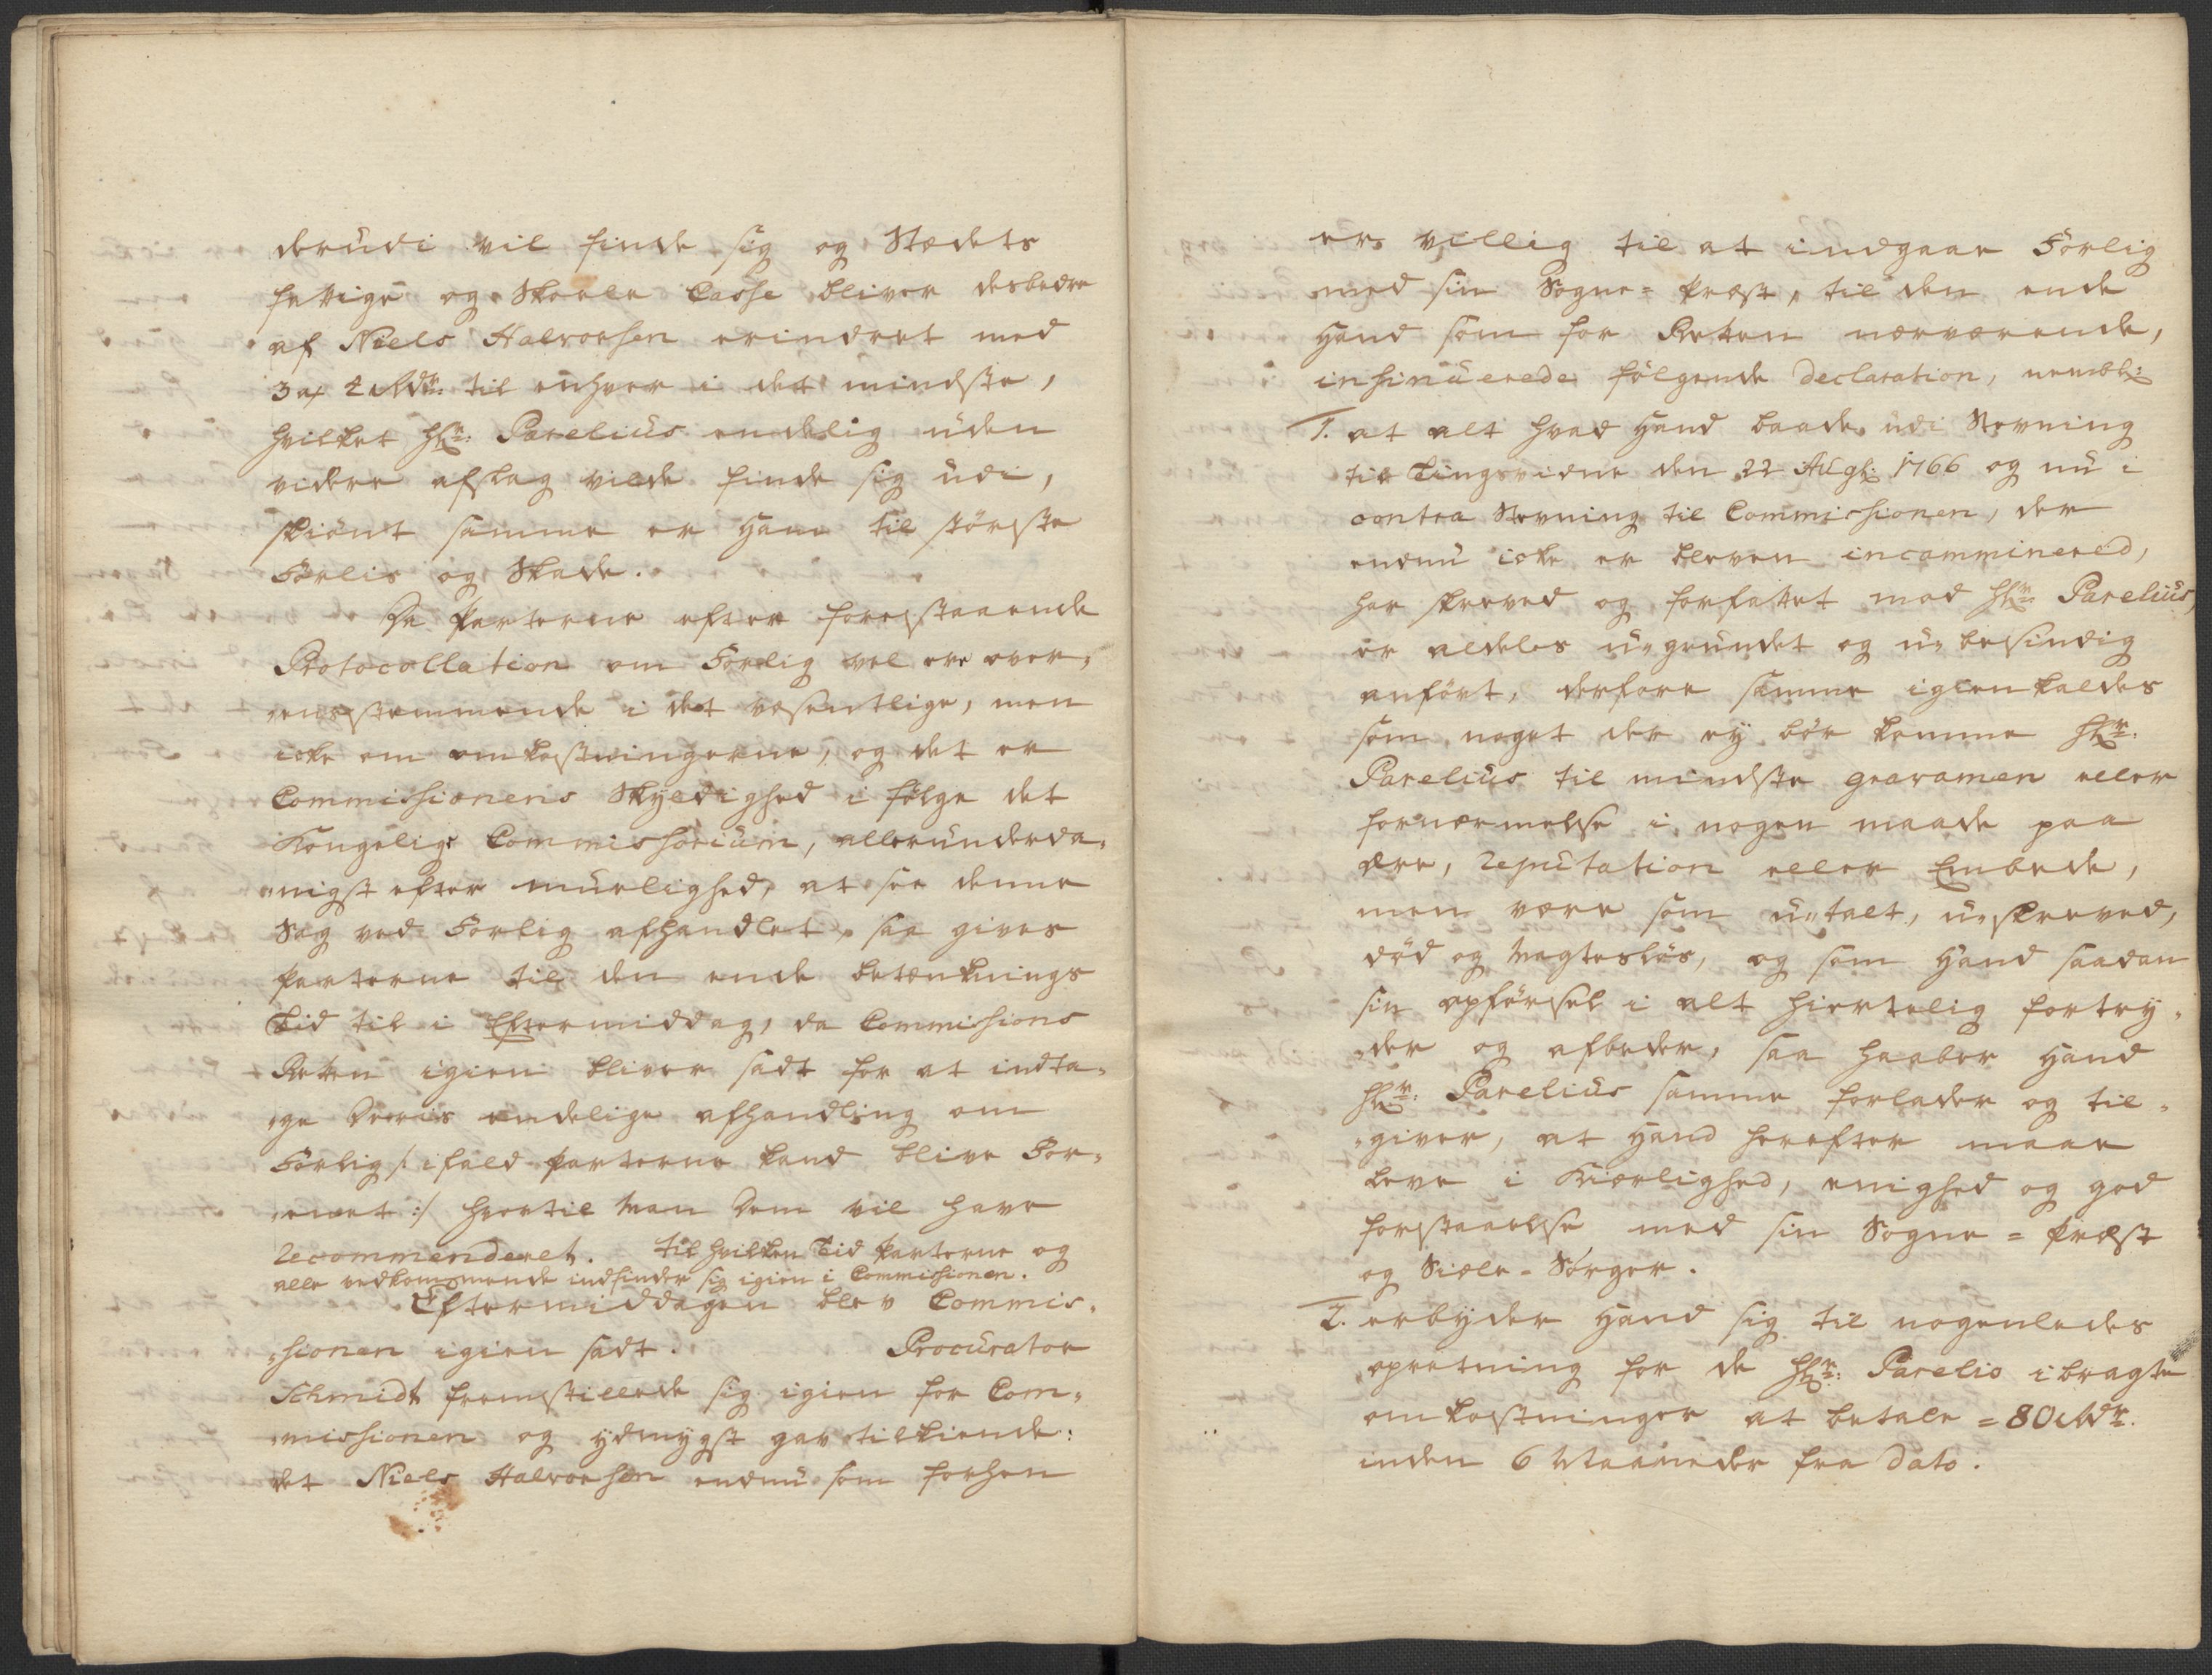 derudi vil finde sig og Stædets
fattige og Skoele Casse bliver desbedre
af Niels Halvorsen erindret med
3 a 4 Rdr: til enhver i det mindste,
hvilket Hr: Parelius endelig uden
videre afslag vilde finde sig udi,
skiönt samme er Ham til störste
Forlis og Skade.
Da Parterne efter forestaaende
Protocollation om Forlig vel ere over-
"eensstemmende i det væsentlige, men
icke om omkostningerne, og det er
Commissionens Skyldighed i fölge det
Kongelige Commissorium, allerunderda-
"nigst efter muelighed, at see denne
Sag ved Forlig afhandlet, saa gives
Parterne til den ende betænknings
Tid til i Eftermiddag, da Commissions
Retten igien bliver sadt for at indta-
"ge Deris endelige afhandling om
Forlig /: ifald Parterne kand blive For-
"eenet :/ hvortil man Dem vil have
recommenderet. til hvilken Tid Parterne og
alle vedkommende indfinder sig igien i Commissionen.
Eftermiddagen blev Commis-
"sionen igien sadt. Procurator
Schmidt fremstillede sig igien for Com-
"missionen og ydmygst gav tilkiende:
det Niels Halvorsen endnu som forhen
er villig til at indgaae Forlig
med sin Sogne= Præst, til den ende
Hand som for Retten nærværende,
insinuerede fölgende declaration, nembl:
1. at alt hvad Hand baade udi Stevning
til Tingsvidne den 22 Augs: 1766 og nu i
contra Stevning til Commissionen, der
endnu icke er bleven incamminered,
har skreved og forfattet mod Hr: Parelius,
er aldeles u"grundet og u"besindig
anfört, derfore samme igienkaldes
som noget der ey bör komme Hr:
Parelius til mindste gravamen eller
fornærmelse i nogen maade paa
ære, reputation eller Embede,
men være som u"talt, u"skreved,
död og magteslös, og som Hand saadan
sin opförsel i alt hiertelig fortry-
"der og afbeder, saa haaber Hand
Hr: Parelius samme forlader og til-
"giver, at Hand herefter maae
leve i Kiærlighed, enighed og god
forstaaelse med sin Sogne= Præst
og Siæle-Sörger.
2. erbyder Hand sig til nogenledes
opretning for de Hr: Parelio ibragte
omkostninger at betale = 80 Rdr.
inden 6 Maaneder fra dato.